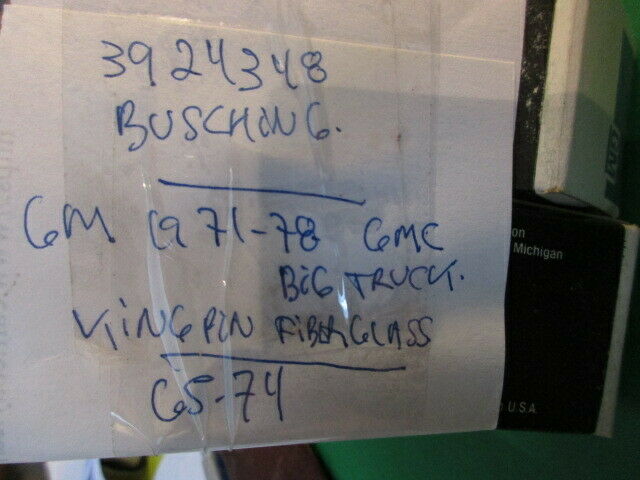 3924348
BUSCHING.
GM 1971-78 GMC
BIG TRUCK.
KING PIN FIBERGLASS
65-74
on
Michigan
USA